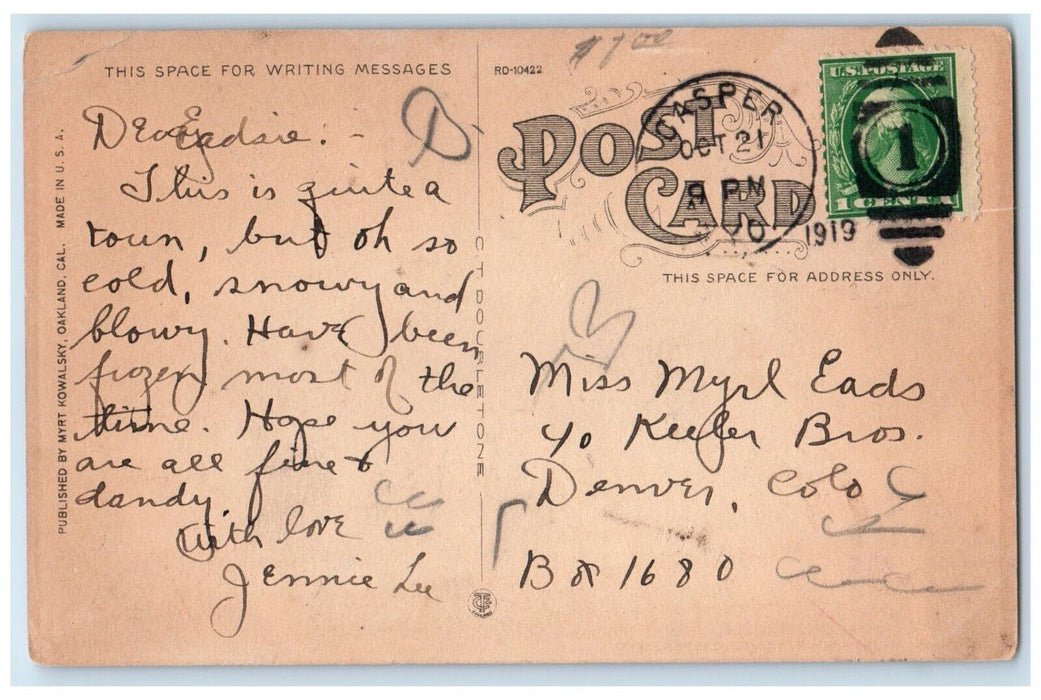 $1.00
THIS SPACE FOR WRITING MESSAGES
RD-10422
POST CARD
CASPER
OCT 21
9 PM
YO
1919
U.S. POSTAGE
1 CENT
1
THIS SPACE FOR ADDRESS ONLY.
PUBLISHED BY MYRT KOWALSKY, OAKLAND, CAL. MADE IN U. S. A.
Dear Eadsie: -
This is quite a
town, but oh so
cold, snowy and
blowy. Have been
frozen most of the
time. Hope you
are all fine &
dandy.
With love
Jennie Lee
C T DOUBLETONE
Miss Myrl Eads
c/o Keefer Bros.
Denver, Colo
Box 1680